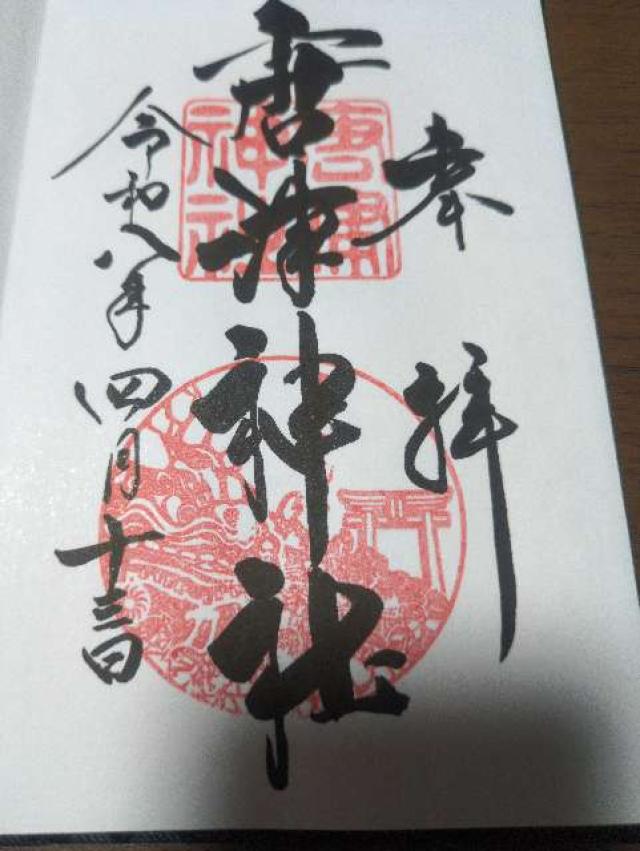 奉拝
唐津神社
唐津神社
令和八年四月十三日